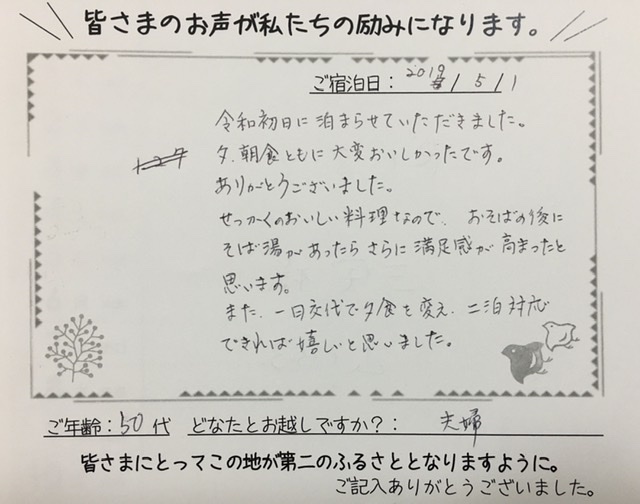 皆さまのお声が私たちの励みになります。
ご宿泊日: 2019/5/1
令和初日に泊まらせていただきました。
夕、朝食ともに大変おいしかったです。
ありがとうございました。
せっかくのおいしい料理なので、おそばの後に
そば湯があったらさらに満足感が高まったと
思います。
また、一日交代で夕食を変え、二泊対応
できれば嬉しいと思いました。
ご年齢:50代 どなたとお越しですか?: 夫婦
皆さまにとってこの地が第二のふるさととなりますように。
ご記入ありがとうございました。